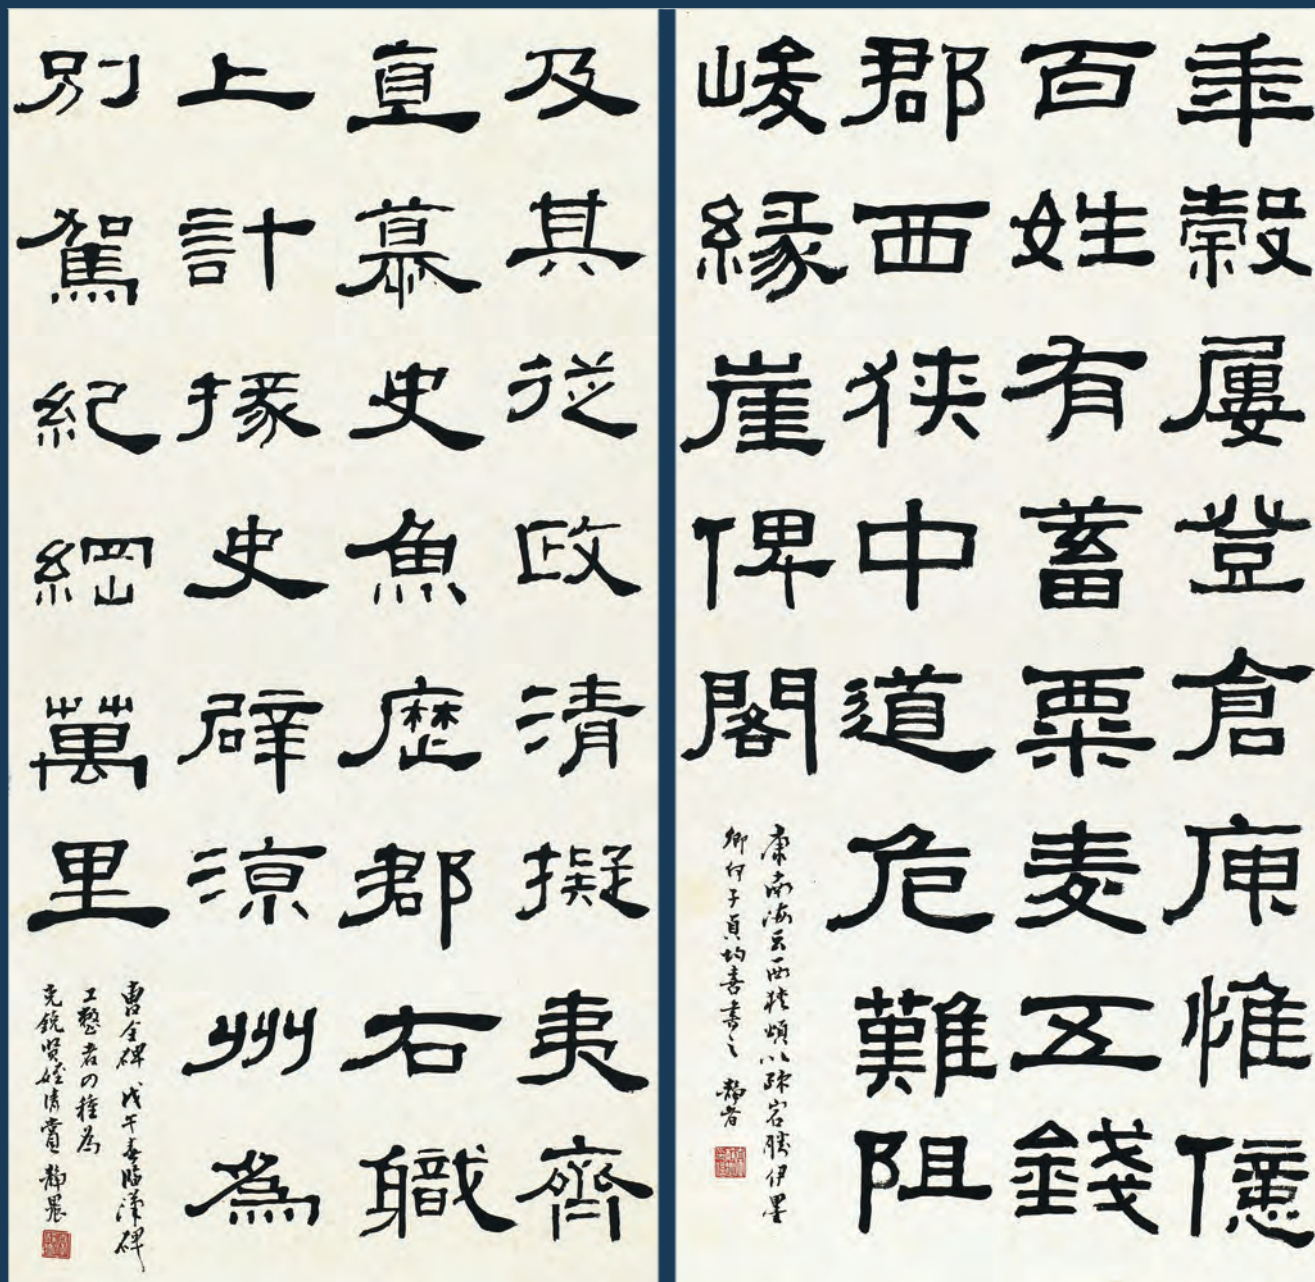 年穀屢登倉庾惟億
百姓有蓄粟麦五錢
郡西狭中道危難阻
峻緣崖俾閣
康南海云西狹頌以疏宕勝伊墨
卿何子貞均喜書之 靜者
及其從政清擬夷齊
直慕史魚歷郡右職
上計掾史辟涼州為
別駕紀綱萬里
曹全碑 戊午春臨漢碑
工整者四種為
賢姪清賞 靜農